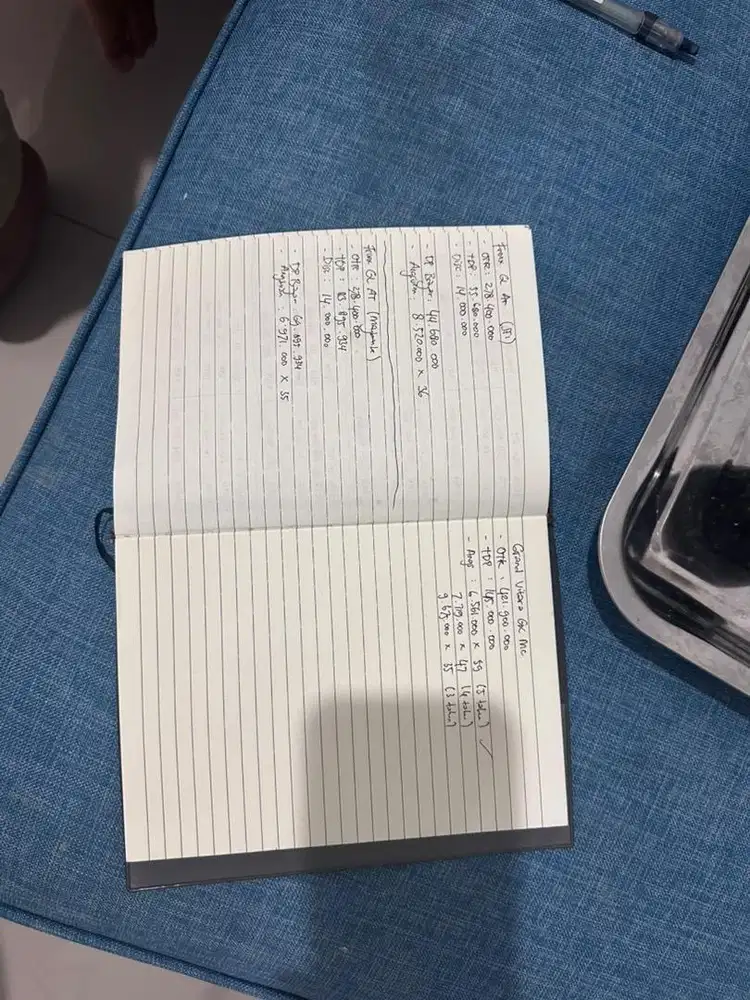 Fronx GL AT (Adi)
- OTR : 278.400.000
- TDP : 55.680.000
- Disc : 14.000.000
- DP Bayar : 41.680.000
- Angsuran : 8.520.000 x 36
Fronx GL AT (Maybank)
- OTR : 278.400.000
- TDP : 83.895.934
- Disc : 14.000.000
- DP Bayar : 69.895.934
- Angsuran : 6.971.000 x 35
Grand Vitara GX MC
- OTR : 421.900.000
- TDP : 145.000.000
- Angs : 6.561.000 x 59 (5 tahun) ✓
x 47 (4 tahun)
x 35 (3 tahun)